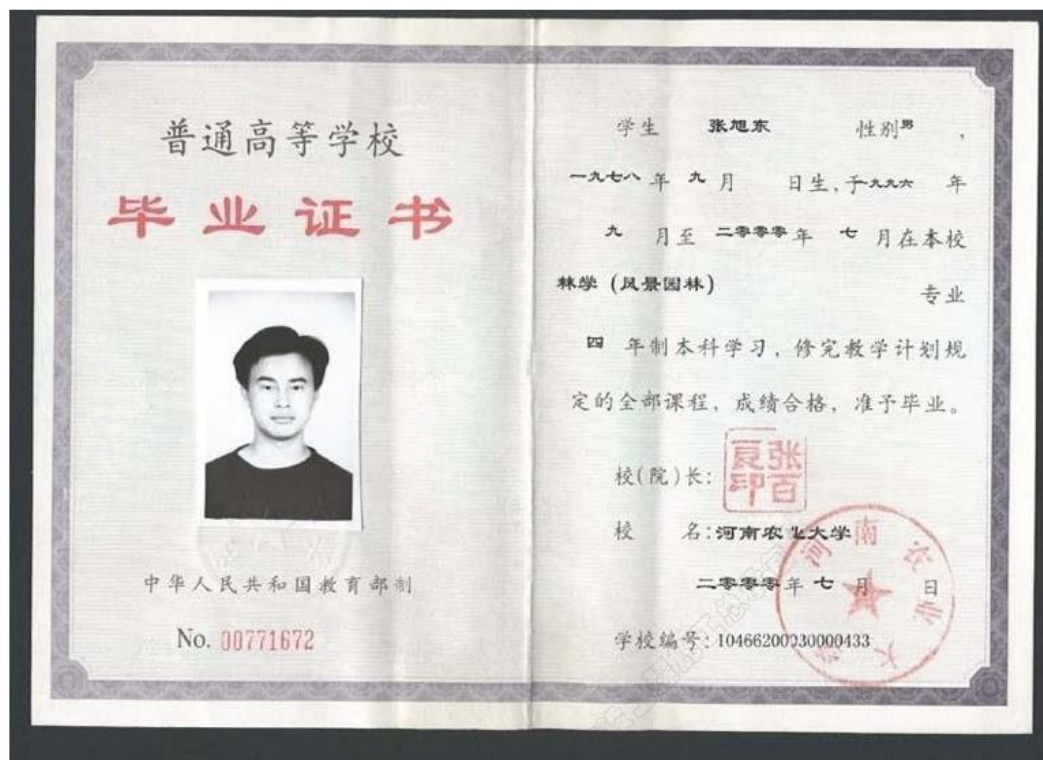 普通高等学校
毕业证书
中华人民共和国教育部制
No. 00771672
学生 张旭东 性别男 ,
一九七八 年 九 月 日生,于一九九六 年
九 月至 二零零零 年 七 月在本校
林学(风景园林) 专业
四 年制本科学习,修完教学计划规
定的全部课程,成绩合格,准予毕业。
校(院)长: 张百良印
校 名:河南农业大学
二零零零年 七 月 日
学校编号:10466200030000433
河南农业大学